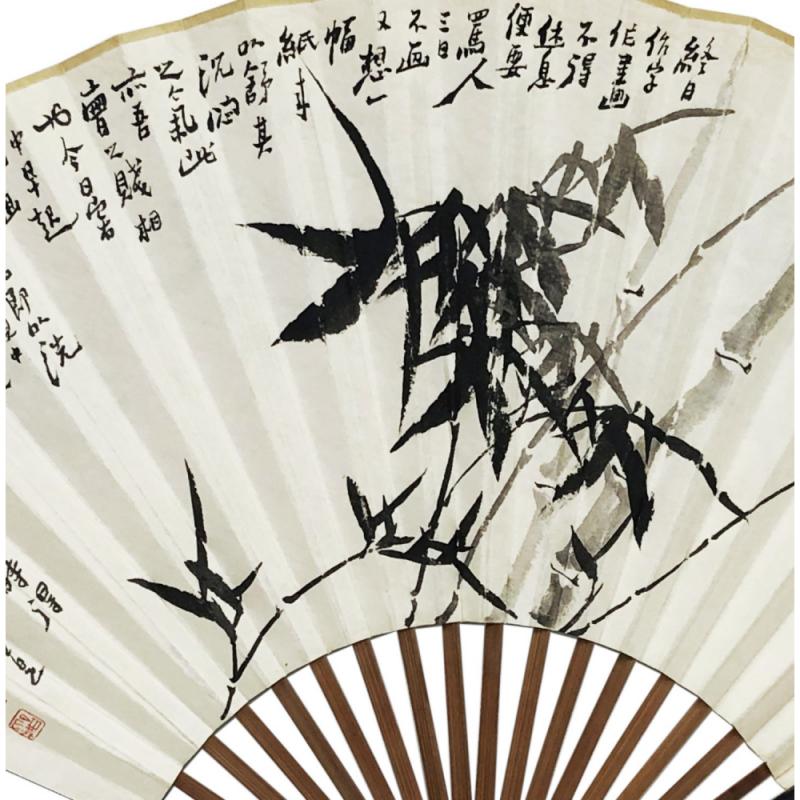 終日
作字
作畫
不得
休息
便要
罵人
三日
不画
又想一
幅
紙来
以舒其
沈悶
之氣此
亦吾
曹之賤相
也今日寓
中早起
即以洗